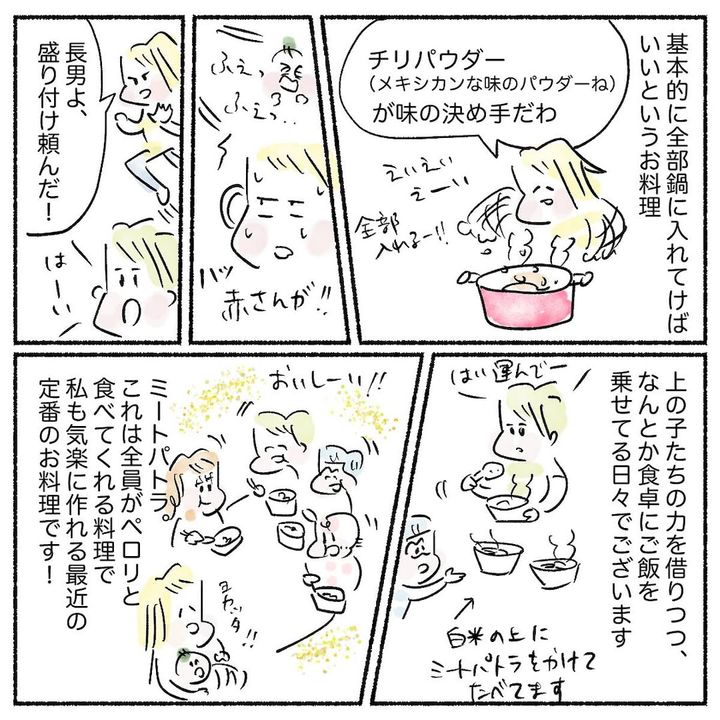 基本的に全部鍋に入れてけば
いいというお料理
チリパウダー
（メキシカンな味のパウダーね）
が味の決め手だわ
えいえい
えーい
全部
入れるー!!
ふえっ
ふえっ…
ハッ
赤さんが!!
長男よ、
盛り付け頼んだ！
はーい
上の子たちの力を借りつつ、
なんとか食卓にご飯を
乗せてる日々でございます
はい運んでー
白米の上に
ミートパトラをかけて
たべてます
おいしーい!!
ミートパトラ
これは全員がペロリと
食べてくれる料理で
私も気楽に作れる最近の
定番のお料理です！
ヨカッタ!!